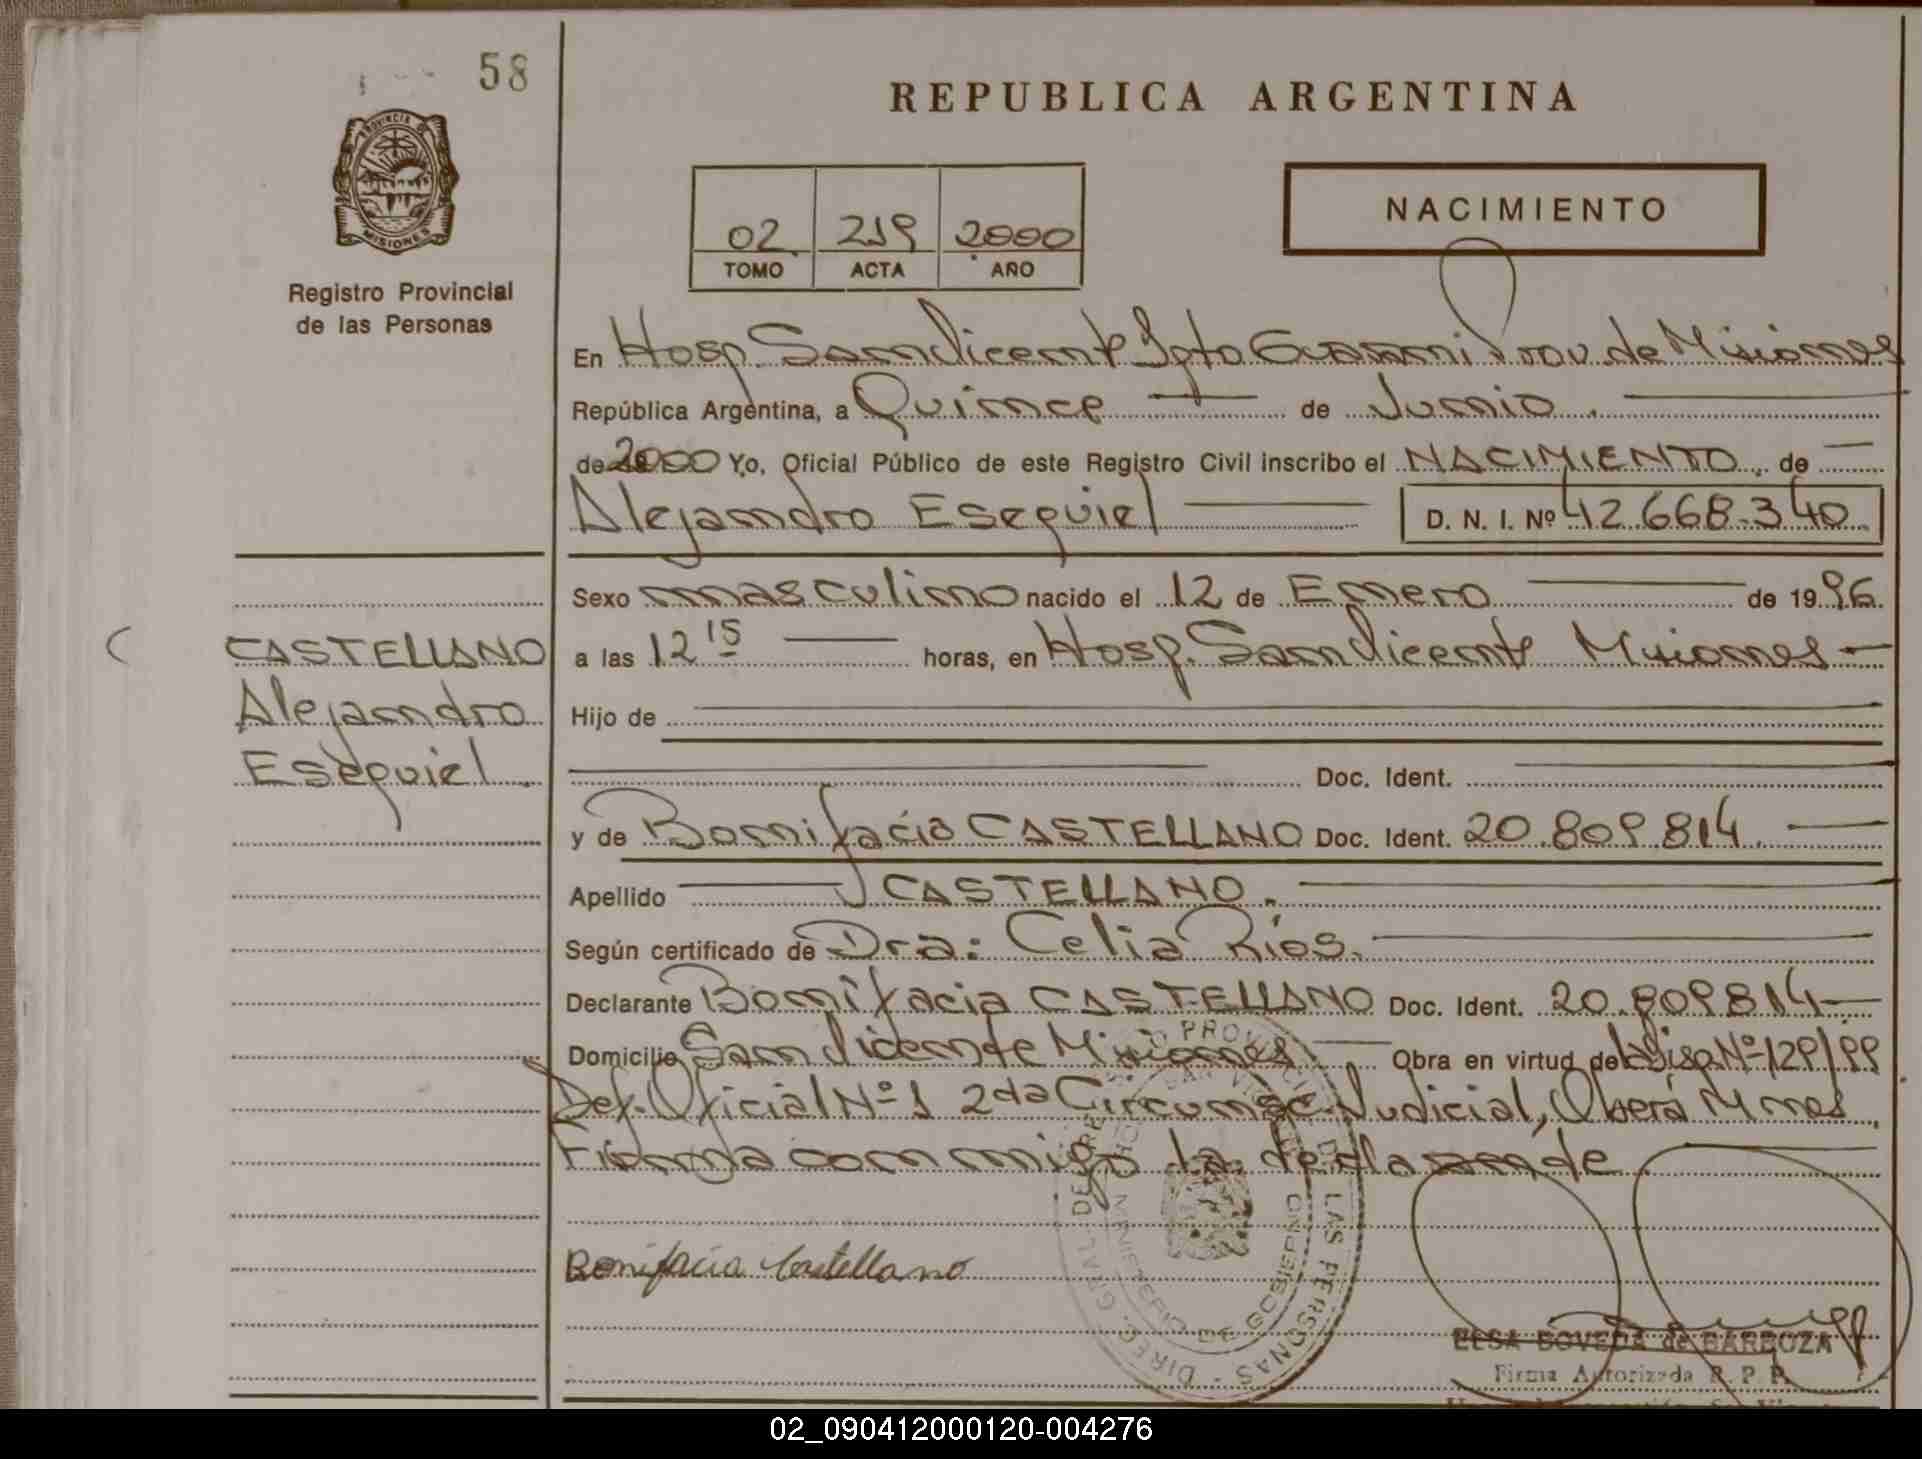 58
REPUBLICA ARGENTINA
PROVINCIA DE
MISIONES
Registro Provincial
de las Personas
02 219 2000
TOMO ACTA AÑO
NACIMIENTO
En Hosp. San Vicente Dpto Guarani Prov. de Misiones
República Argentina, a Quince de Junio.
de 2000 Yo, Oficial Público de este Registro Civil inscribo el NACIMIENTO de
Alejandro Esequiel D. N. I. Nº 42.668.340
Sexo masculino nacido el 12 de Enero de 1996.
a las 12 15 horas, en Hosp. San Vicente Misiones
Hijo de
Doc. Ident.
y de Bonifacia CASTELLANO Doc. Ident. 20.809.814
Apellido CASTELLANO.
Según certificado de Dra: Celia Rios.
Declarante Bonifacia CASTELLANO Doc. Ident. 20.809.814
Domicilio San Vicente Misiones Obra en virtud de Disp. Nº 129/99
Def. Oficial Nº 1 2da Circunsc. Judicial, Oberá Mnes
Firma conmigo la declarante
CASTELLANO
Alejandro
Esequiel
Bonifacia Castellano
DIREC. GRAL. DE REG PROVINCIAL DE LAS PERSONAS
MINISTERIO DE GOBIERNO
SAN VICENTE
ELSA BOVEDA de BARBOZA
Firma Autorizada R. P. P.
02_090412000120-004276